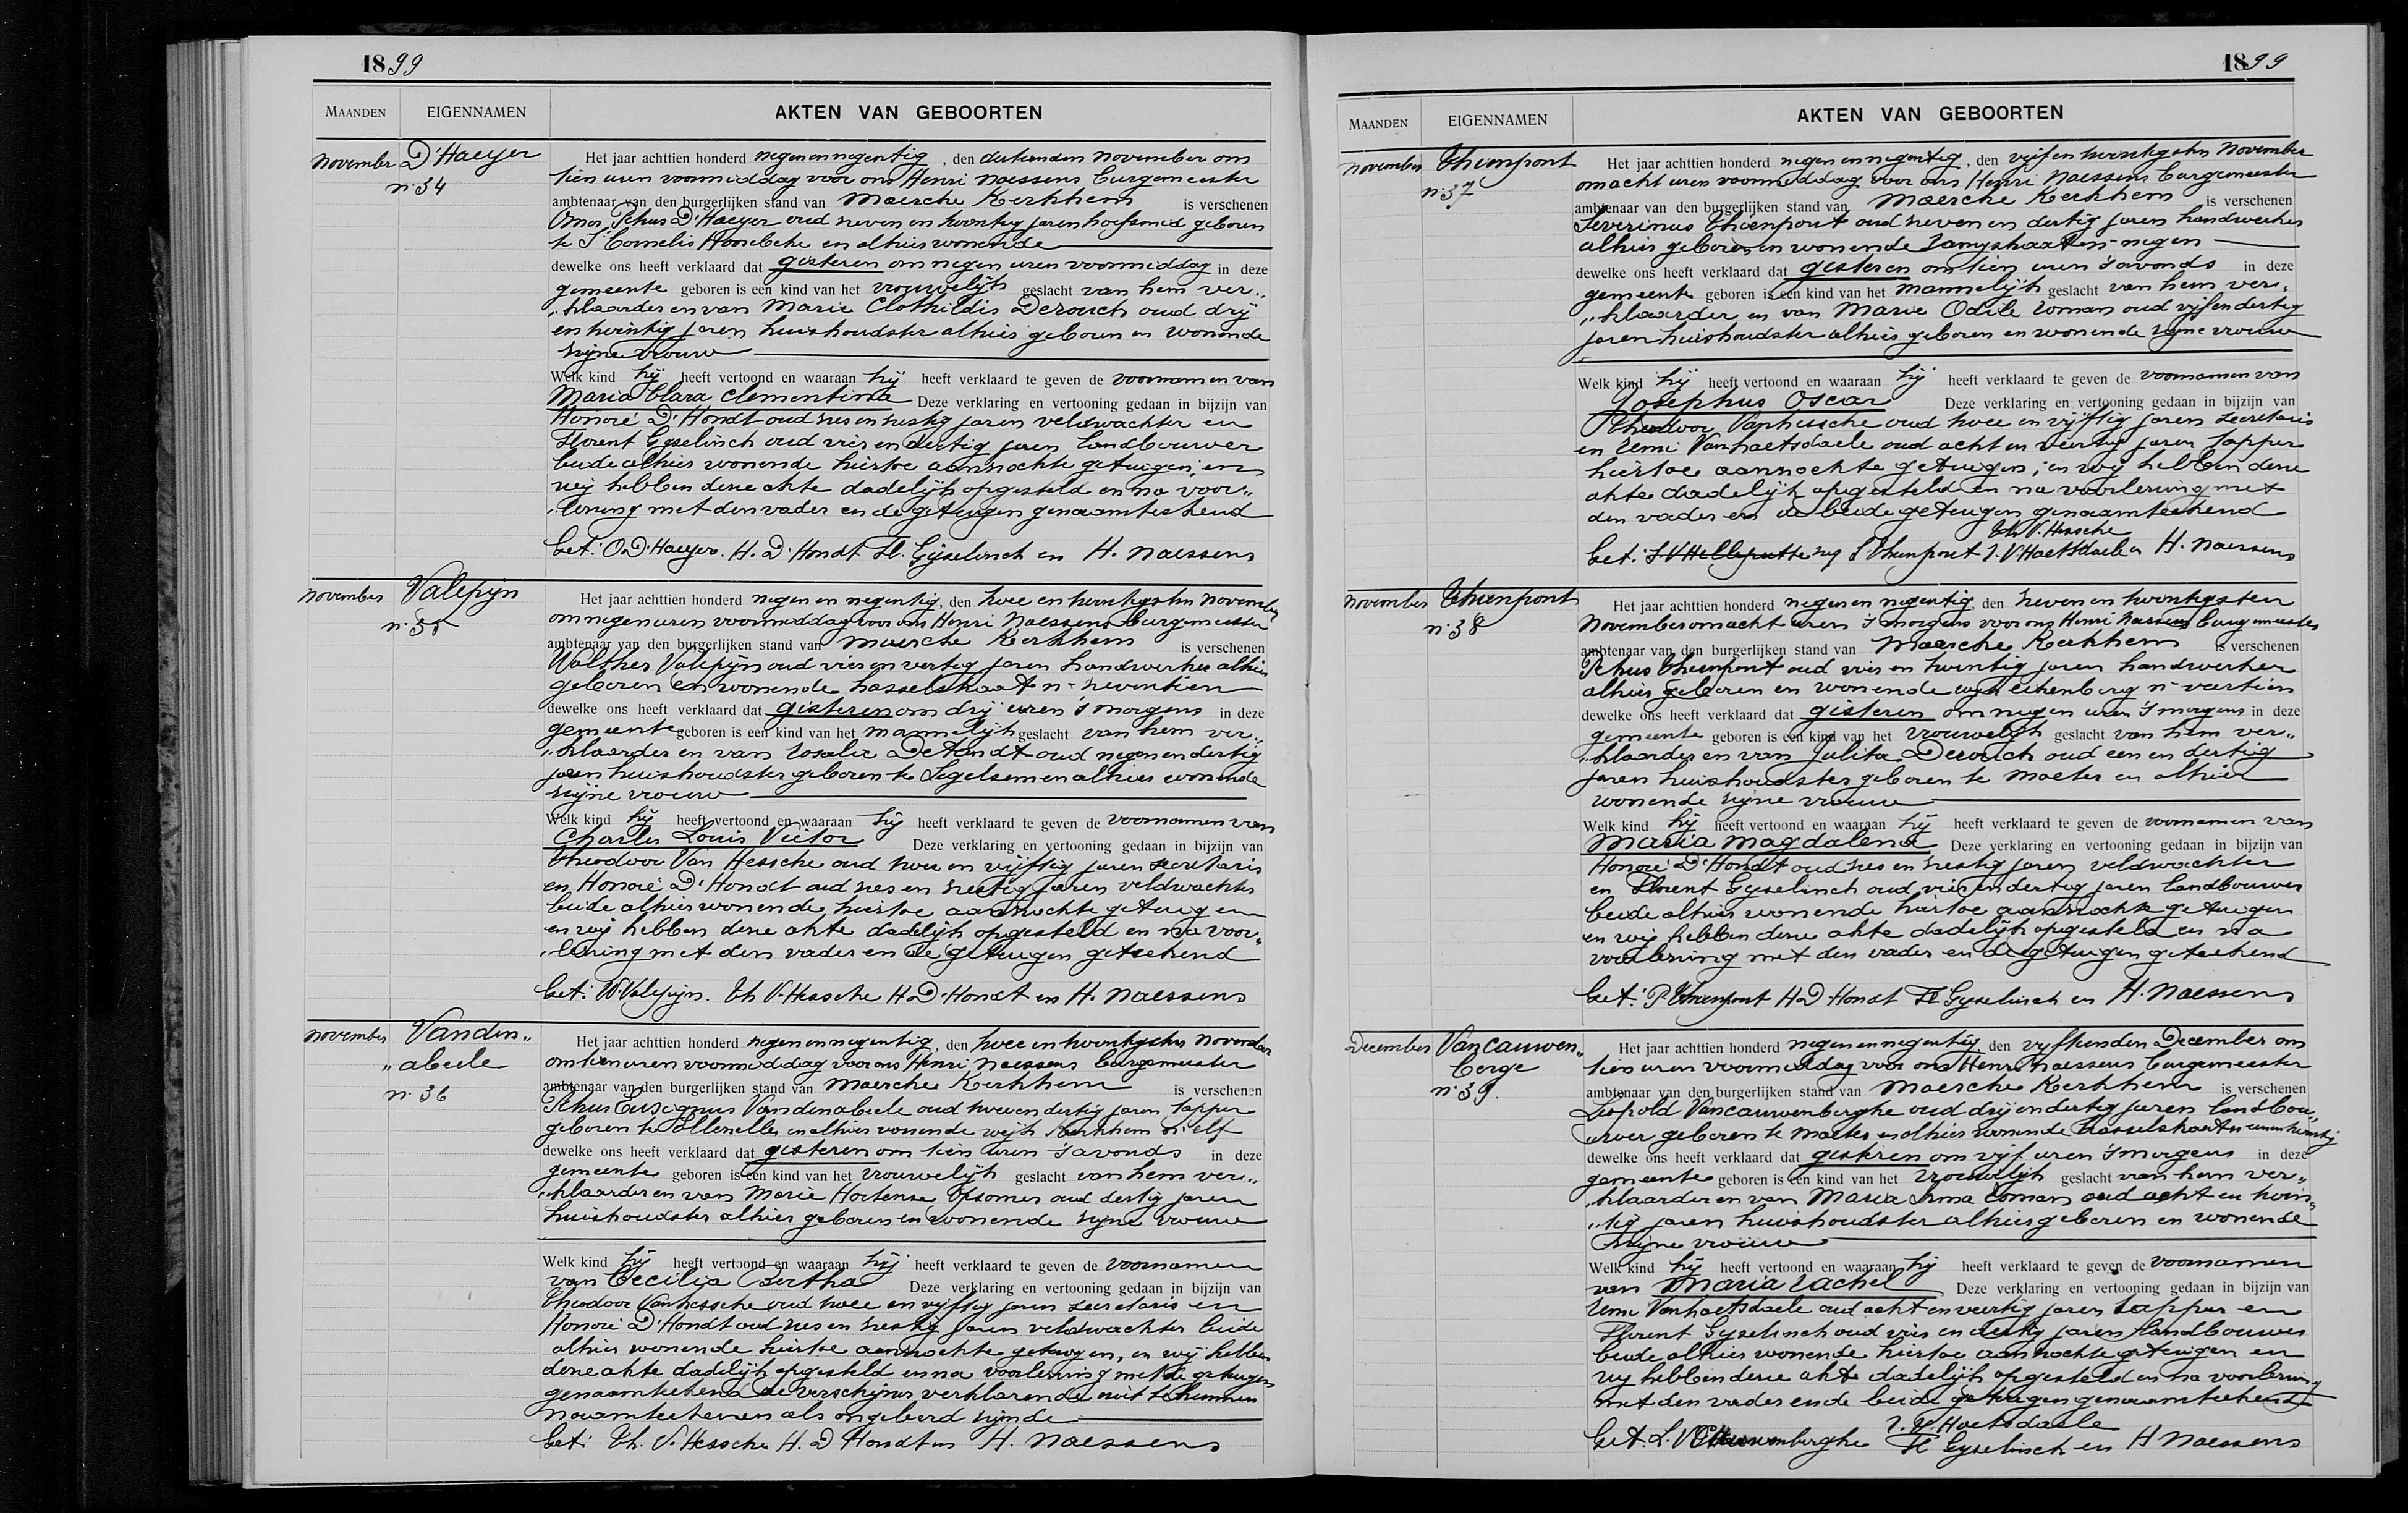 1899
MAANDEN EIGENNAMEN AKTEN VAN GEBOORTEN
November D'Haeyer
n. 34
Het jaar achttien honderd negen en negentig, den dertienden November om
tien uren voormiddag voor ons Henri Naessens Burgemeester
ambtenaar van den burgerlijken stand van Maercke Kerkhem is verschenen
Omer Petrus D'Haeyer oud zeven en twintig jaren hoefsmid geboren
te St Cornelis Hoorebeke en alhier wonende
dewelke ons heeft verklaard dat gisteren om negen uren voormiddag in deze
gemeente geboren is een kind van het vrouwelijk geslacht van hem ver„
„klaarder en van Marie Clothildis Derouck oud drij
en twintig jaren huishoudster alhier geboren en wonende
zijne vrouw
Welk kind hij heeft vertoond en waaraan hij heeft verklaard te geven de voornamen van
Maria Clara Clementina Deze verklaring en vertooning gedaan in bijzijn van
Honoré D'Hondt oud zes en zestig jaren veldwachter en
Florent Gyselinck oud vier en dertig jaren landbouwer
beide alhier wonende hiertoe aanzochte getuigen; en
wij hebben deze akte dadelijk opgesteld en na voor„
„lezing met den vader en de getuigen genaamteekend
Get: O D'Haeyer. H. D'Hondt Fl. Gyselinck en H. Naessens
November Valepyn
n. 35
Het jaar achttien honderd negen en negentig, den twee en twintigsten November
om negen uren voormiddag voor ons Henri Naessens Burgemeester
ambtenaar van den burgerlijken stand van Maercke Kerkhem is verschenen
Walther Valepijn oud vier en vertig jaren handwerker alhier
geboren en wonende hasselstraat n- zeventien
dewelke ons heeft verklaard dat gisteren om drij uren 's morgens in deze
gemeente geboren is een kind van het mannelijk geslacht van hem ver„
„klaarder en van Rosalie De Handt oud negen en dertig
jaren huishoudster geboren te Segelsem en alhier wonende
zijne vrouw
Welk kind hij heeft vertoond en waaraan hij heeft verklaard te geven de voornamen van
Charles Louis Victor Deze verklaring en vertooning gedaan in bijzijn van
Theodoor Van Hessche oud twee en vijftig jaren secretaris
en Honoré D'Hondt oud zes en zestig jaren veldwachter
beide alhier wonende hiertoe aanzochte getuigen
en wij hebben deze akte dadelijk opgesteld en na voor„
„lezing met den vader en de getuigen geteekend
Get: W. Valepijn. Th V. Hessche H. D'Hondt en H. Naessens
November Vanden„
„abeele
n. 36
Het jaar achttien honderd negen en negentig, den twee en twintigsten November
om tien uren voormiddag voor ons Henri Naessens Burgemeester
ambtenaar van den burgerlijken stand van Maercke Kerkhem is verschenen
Petrus Vandenabeele oud twee en dertig jaren tapper
geboren te Ellezelles en alhier wonende wijk Kerkhem n. elf
dewelke ons heeft verklaard dat gisteren om tien uren 's avonds in deze
gemeente geboren is een kind van het vrouwelijk geslacht van hem ver„
„klaarder en van Marie Hortense Opsomer oud dertig jaren
huishoudster alhier geboren en wonende zijne vrouw
Welk kind hij heeft vertoond en waaraan hij heeft verklaard te geven de voornamen
van Cecilia Bertha Deze verklaring en vertooning gedaan in bijzijn van
Theodoor Vanhessche oud twee en vijftig jaren secretaris en
Honoré D'Hondt oud zes en zestig jaren veldwachter beide
alhier wonende hiertoe aanzochte getuigen, en wij hebben
deze akte dadelijk opgesteld en na voorlezing met de getuigen
genaamteekend de verschijner verklarende niet te kunnen
naamteekenen als ongeleerd zijnde
Get: Th. V. Hessche H. D Hondt en H. Naessens
1899
MAANDEN EIGENNAMEN AKTEN VAN GEBOORTEN
November Thienpont
n. 37
Het jaar achttien honderd negen en negentig, den vijf en twintigsten November
om acht uren voormiddag voor ons Henri Naessens Burgemeester
ambtenaar van den burgerlijken stand van Maercke Kerkhem is verschenen
Severinus Thienpont oud zeven en dertig jaren handwerker
alhier geboren en wonende n- negen
dewelke ons heeft verklaard dat gisteren om tien uren 's avonds in deze
gemeente geboren is een kind van het mannelijk geslacht van hem ver„
„klaarder en van Marie Odile Roman oud vijf en dertig
jaren huishoudster alhier geboren en wonende zijne vrouw
Welk kind hij heeft vertoond en waaraan hij heeft verklaard te geven de voornamen van
Josephus Oscar Deze verklaring en vertooning gedaan in bijzijn van
Theodoor Vanhessche oud twee en vijftig jaren secretaris
en Remi Vanhaetsdaele oud acht en veertig jaren tapper
hiertoe aanzochte getuigen; en wij hebben deze
akte dadelijk opgesteld en na voorlezing met
den vader en de beide getuigen genaamteekend
Th V. Hessche
Get: S Thienpont R. V Haetsdaele en H. Naessens
November Thienpont
n. 38
Het jaar achttien honderd negen en negentig den zeven en twintigsten
November om acht uren 's morgens voor ons Henri Naessens Burgemeester
ambtenaar van den burgerlijken stand van Maercke Kerkhem is verschenen
Petrus Thienpont oud vier en twintig jaren handwerker
alhier geboren en wonende wijk eikenberg n- veertien
dewelke ons heeft verklaard dat gisteren om negen uren 's morgens in deze
gemeente geboren is een kind van het vrouwelijk geslacht van hem ver„
„klaarder en van Julita Derouck oud een en dertig
jaren huishoudster geboren te Maeter en alhier
wonende zijne vrouw
Welk kind hij heeft vertoond en waaraan hij heeft verklaard te geven de voornamen van
Maria Magdalena Deze verklaring en vertooning gedaan in bijzijn van
Honoré D'Hondt oud zes en zestig jaren veldwachter
en Florent Gyselinck oud vier en dertig jaren landbouwer
beide alhier wonende hiertoe aanzochte getuigen
en wij hebben deze akte dadelijk opgesteld en na
voorlezing met den vader en de getuigen geteekend
Get: P. Thienpont H D'Hondt Fl Gyselinck en H. Naessens
December Vancauwen„
berge
n. 39.
Het jaar achttien honderd negen en negentig den vijftienden December om
tien uren voormiddag voor ons Henri Naessens Burgemeester
ambtenaar van den burgerlijken stand van Maercke Kerkhem is verschenen
Leopold Vancauwenberghe oud drij en dertig jaren landbou„
wer geboren te Maeter en alhier wonende hasselstraat n een en twintig
dewelke ons heeft verklaard dat gisteren om vijf uren 's morgens in deze
gemeente geboren is een kind van het vrouwelijk geslacht van hem ver„
„klaarder en van Maria Irma Roman oud acht en twin„
„tig jaren huishoudster alhier geboren en wonende
zijne vrouw
Welk kind hij heeft vertoond en waaraan hij heeft verklaard te geven de voornamen
van Maria Rachel Deze verklaring en vertooning gedaan in bijzijn van
Remi Vanhaetsdaele oud acht en veertig jaren tapper en
Florent Gyselinck oud vier en dertig jaren landbouwer
beide alhier wonende hiertoe aanzochte getuigen en
wij hebben deze akte dadelijk opgesteld en na voorlezing
met den vader en de beide getuigen genaamteekend
R. V. Haetsdaele
Get. L. VCauwenberghe Fl Gyselinck en H Naessens